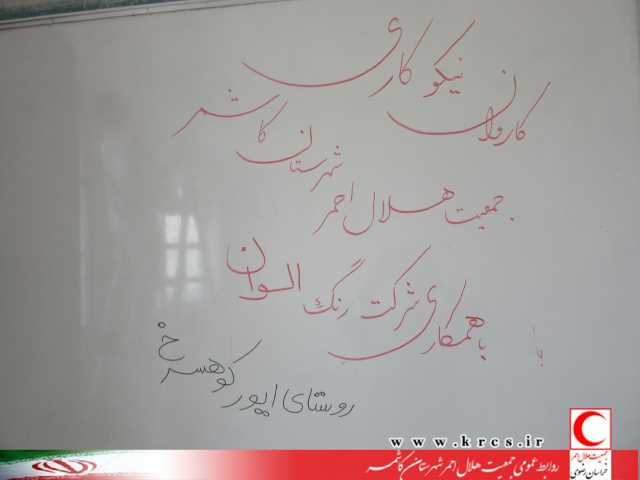 کاروان نیکوکاری
جمعیت هلال احمر شهرستان کاشمر
با همکاری شرکت رنگ الوان
روستای اپور کوهسرخ
www.krcs.ir
روابط عمومی جمعیت هلال احمر شهرستان کاشمر
جمعیت هلال احمر
خراسان رضوی